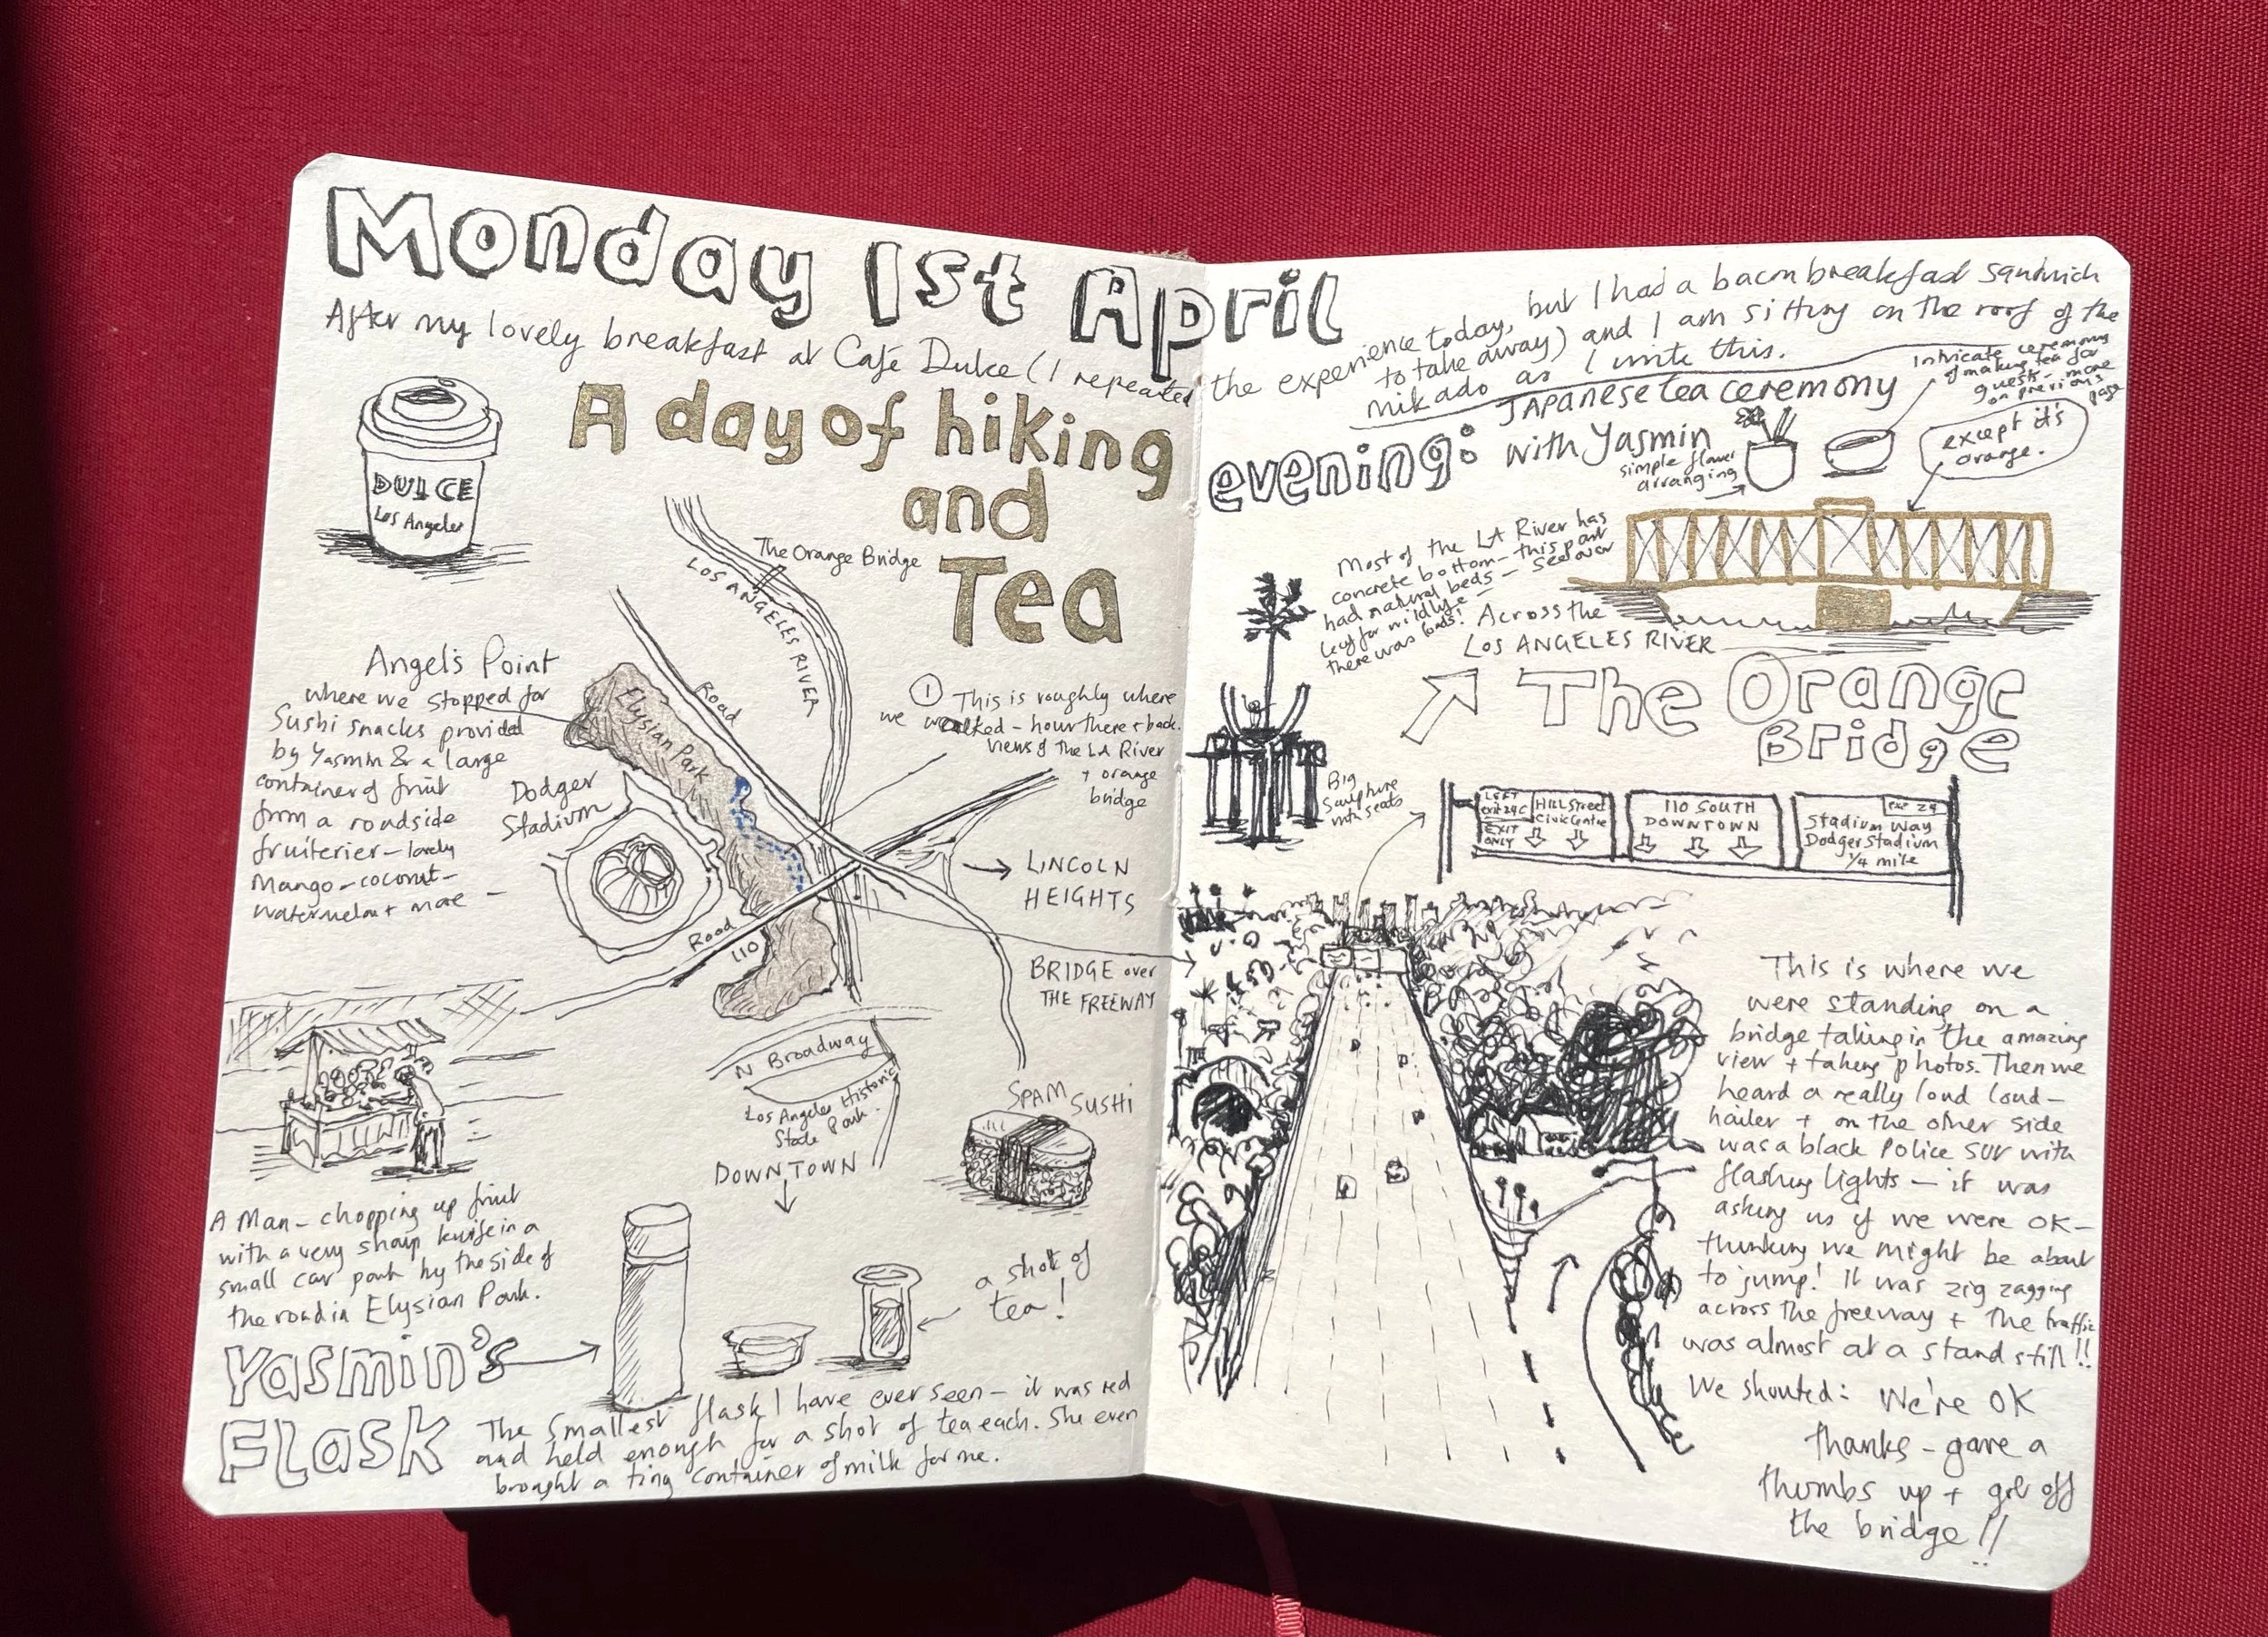 Monday 1st April
After my lovely breakfast at Café Dulce (I repeated
the experience today, but I had a bacon breakfast sandwich
to take away) and I am sitting on the roof of the
mikado as I write this.
DULCE
Los Angeles
A day of hiking
and
Tea
The Orange Bridge
LOS ANGELES RIVER
Angel's Point
where we stopped for
Sushi snacks provided
by Yasmin & a large
container of fruit
from a roadside
fruiterier - lovely
Mango - coconut -
watermelon + more -
Elysian Park
Road
Dodger
Stadium
① This is roughly where
we walked - hour there + back.
views of the LA River
+ orange
bridge
LINCOLN
HEIGHTS
Road
110
BRIDGE over
THE FREEWAY
N Broadway
Los Angeles Historic
State Park.
DOWNTOWN
SPAM SUSHI
A Man - chopping up fruit
with a very sharp knife in a
small car park by the side of
the road in Elysian Park.
Yasmin's
Flask
a shot of
tea!
The smallest flask I have ever seen - it was red
and held enough for a shot of tea each. She even
brought a tiny container of milk for me.
evening:
JAPanese tea ceremony
with Yasmin
simple flower
arranging
Intricate ceremony
of making tea for
guests - more
on previous
page
except it's
orange.
Most of the LA River has
concrete bottom - this part
had natural beds -
there was loads!
Across the
LOS ANGELES RIVER
The Orange
Bridge
Big
Sculpture
with seats
LEFT
exit 24C
EXIT
ONLY
Hill Street
Civic Centre
110 SOUTH
DOWNTOWN
exit 24
Stadium Way
Dodger Stadium
1/4 mile
This is where we
were standing on a
bridge taking in the amazing
view + taking photos. Then we
heard a really loud loud-
hailer + on the other side
was a black Police SUV with
flashing lights - it was
asking us if we were OK -
thinking we might be about
to jump! It was zig zagging
across the freeway + the traffic
was almost at a stand still!!
We shouted: We're OK
thanks - gave a
thumbs up + got off
the bridge!!